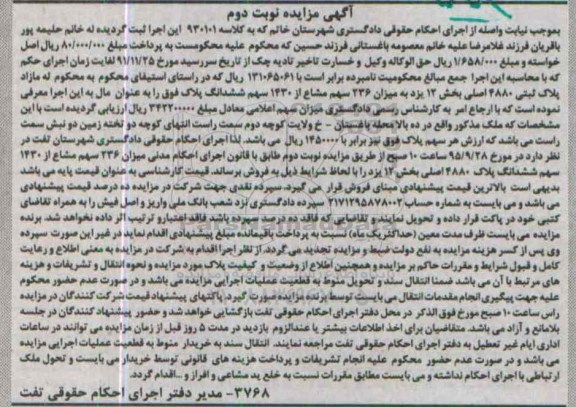 آگهی مزایده نوبت دوم
بموجب نیابت واصله از اجرای احکام حقوقی دادگستری شهرستان خاتم که به کلاسه ۹۳۰۱۰۱ این اجرا ثبت گردیده له خانم حلیمه پور
باقریان فرزند غلامرضا علیه خانم معصومه باغستانی فرزند حسین که محکوم علیه محکومست به پرداخت مبلغ ۸۰/۰۰۰/۰۰۰ ریال اصل
خواسته و مبلغ ۱/۶۵۸/۰۰۰ ریال حق الوکاله وکیل و خسارت تاخیر تادیه چک از تاریخ سررسید مورخ ۹۱/۱۱/۲۵ لغایت زمان اجرای حکم
که با محاسبه این اجرا جمع مبالغ محکومیت نامبرده برابر است با ۱۳۱۰۶۵۰۶۱ ریال که در راستای استیفای محکوم به محکوم له مازاد
پلاک ثبتی ۴۸۸۰ اصلی بخش ۱۲ یزد به میزان ۲۳۶ سهم مشاع از ۱۴۳۰ سهم ششدانگ پلاک فوق را به عنوان مال به این اجرا معرفی
نموده است که با ارجاع امر به کارشناس رسمی دادگستری میزان سهم اعلامی معادل مبلغ ۳۴۲۲۰۰۰۰۰ ریال ارزیابی گردیده است با این
مشخصات که ملک مذکور واقع در ده بالا محله باغستان - خ ولایت کوچه دوم سمت راست انتهای کوچه دو تخته زمین دو نبش سمت
راست می باشد که ارزش هر سهم پلاک فوق نیز برابر با ۱۴۵۰۰۰۰ ریال می باشد. لذا اجرای احکام حقوقی دادگستری شهرستان تفت در
نظر دارد در مورخ ۹۵/۹/۲۸ ساعت ۱۰ صبح از طریق مزایده نوبت دوم طابق با قانون اجرای احکام مدنی میزان ۲۳۶ سهم مشاع از ۱۴۳۰
سهم ششدانگ پلاک ۴۸۸۰ اصلی بخش ۱۲ یزد را با لحاظ شرایط ذیل به فروش برساند. قیمت کارشناسی به عنوان قیمت پایه می باشد
بدیهی است بالاترین قیمت پیشنهادی مبنای فروش قرار می گیرد. سپرده نقدی جهت شرکت در مزایده ده درصد قیمت پیشنهادی
می باشد و می بایست به شماره حساب ۲۱۷۱۲۹۵۸۷۸۰۰۲ سپرده دادگستری نزد شعب بانک ملی واریز و اصل فیش را به همراه تقاضای
کتبی خود در پاکت قرار داده و تحویل نمایند و تقاضایی که فاقد ده درصد سپرده باشد فاقد اعتبار و ترتیب اثر داده نخواهد شد. برنده
مزایده می بایست ظرف مدت معین (حداکثر یک ماه) نسبت به پرداخت باقیمانده مبلغ پیشنهادی اقدام نماید در غیر این صورت سپرده
وی پس از کسر هزینه مزایده به نفع دولت ضبط و مزایده تجدید می گردد. از نظر اجرا اقدام به شرکت در مزایده به معنی اطلاع و رعایت
کامل و قبول شرایط و مقررات حاکم بر مزایده و همچنین اطلاع از وضعیت و کیفیت پلاک مورد مزایده و نحوه انتقال و تشریفات و هزینه
های مرتبط با آن می باشد ضمنا انتقال سند و تحویل منوط به قطعیت عملیات اجرایی مزایده می باشد و در صورت عدم حضور محکوم
علیه جهت پیگیری انجام مقدمات انتقال می بایست توسط برنده مزایده صورت گیرد. پاکتهای پیشنهاد قیمت شرکت کنندگان در مزایده
راس ساعت ۱۰ صبح مورخ فوق الذکر در محل دفتر اجرای احکام حقوقی تفت بازگشایی خواهد شد و حضور پیشنهاد کنندگان در جلسه
بلامانع و آزاد می باشد. متقاضیان برای اخذ اطلاعات بیشتر یا عندالزوم بازدید در مدت ۵ روز قبل از زمان مزایده می توانند در ساعات
اداری ایام غیر تعطیل به دفتر اجرای احکام حقوقی تفت مراجعه نمایند. انتقال سند به خریدار منوط به قطعیت عملیات اجرایی مزایده
می باشد و در صورت عدم حضور محکوم علیه انجام تشریفات و پرداخت هزینه های قانونی توسط خریدار می بایست و تحول ملک
ارتباطی با اجرای احکام نداشته و می بایست مطابق مقررات نسبت به خلع ید مشاعی و افراز و ...اقدام گردد.
۳۷۶۸- مدیر دفتر اجرای احکام حقوقی تفت